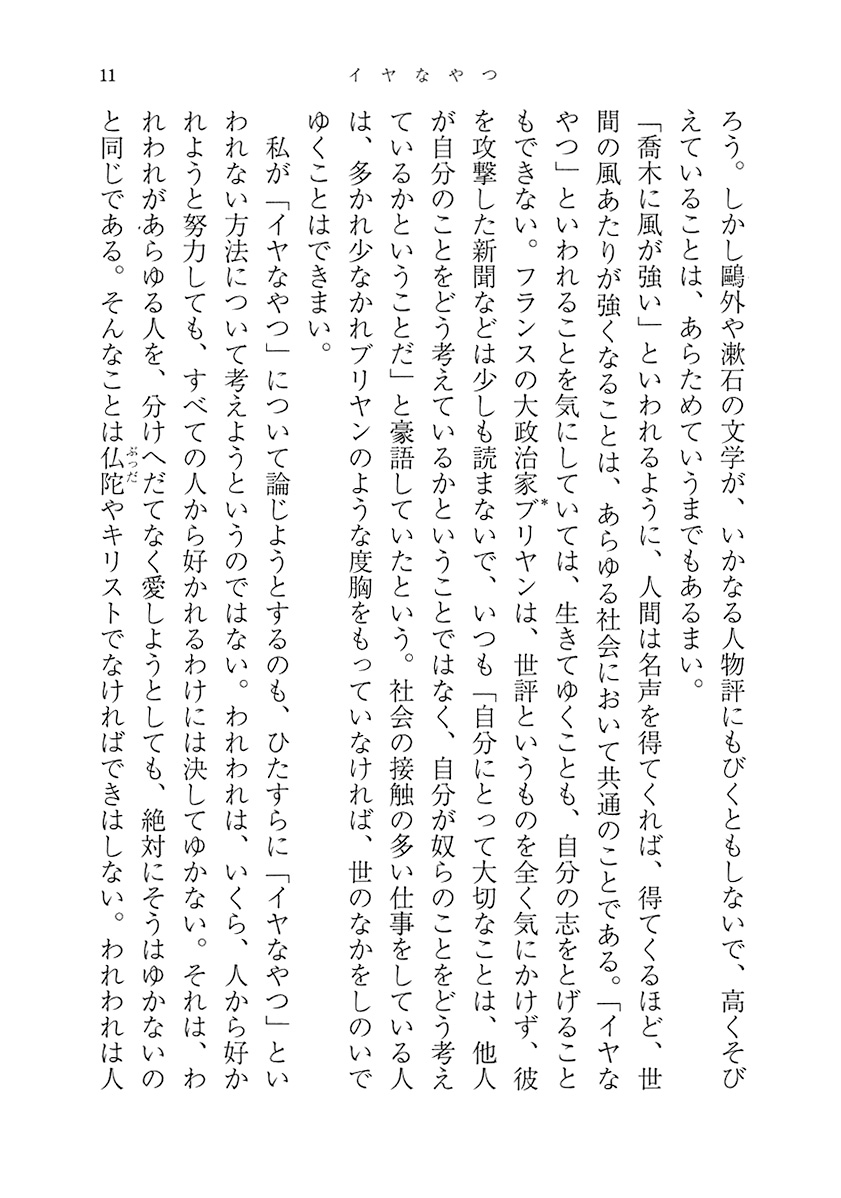 11
イヤなやつ
ろう。しかし鷗外や漱石の文学が、いかなる人物評にもびくともしないで、高くそび
えていることは、あらためていうまでもあるまい。
「喬木に風が強い」といわれるように、人間は名声を得てくれば、得てくるほど、世
間の風あたりが強くなることは、あらゆる社会において共通のことである。「イヤな
やつ」といわれることを気にしていては、生きてゆくことも、自分の志をとげること
もできない。フランスの大政治家ブリヤン*は、世評というものを全く気にかけず、彼
を攻撃した新聞などは少しも読まないで、いつも「自分にとって大切なことは、他人
が自分のことをどう考えているかということではなく、自分が奴らのことをどう考え
ているかということだ」と豪語していたという。社会の接触の多い仕事をしている人
は、多かれ少なかれブリヤンのような度胸をもっていなければ、世のなかをしのいで
ゆくことはできまい。
私が「イヤなやつ」について論じようとするのも、ひたすらに「イヤなやつ」とい
われない方法について考えようというのではない。われわれは、いくら、人から好か
れようと努力しても、すべての人から好かれるわけには決してゆかない。それは、わ
れわれがあらゆる人を、分けへだてなく愛しようとしても、絶対にそうはゆかないの
と同じである。そんなことは仏陀ぶっだやキリストでなければできはしない。われわれは人